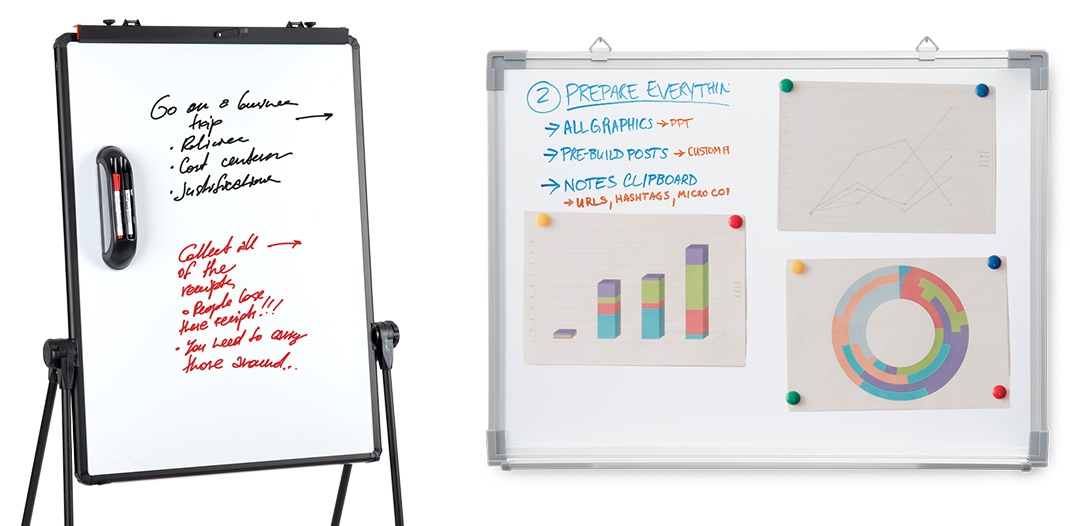 Go on a business
trip →
• Policies
• Cost centers
• Justifications
Collect all →
of the
receipts
• People lose
these receipts!!!
• You need to carry
those around...
2 PREPARE EVERYTHIN
→ ALL GRAPHICS → PPT
→ PRE-BUILD POSTS → CUSTOM
→ NOTES CLIPBOARD
→ URLS, HASHTAGS, MICRO